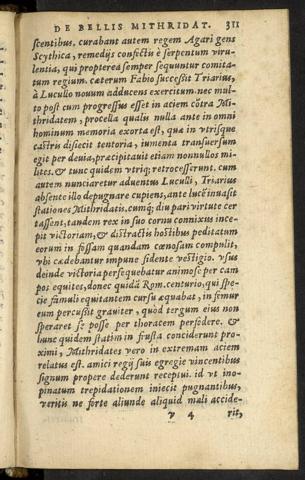 DE BELLIS MITHRIDAT. 311
scentibus. curabant autem regem Agari gens
Scythica, remedijs confectis è serpentum viru-
lentia, qui propterea semper sequuntur comita-
tum regium. cæterum Fabio successit Triarius,
à Lucullo nouum adducens exercitum. nec mul-
to post cum progressus esset in aciem cõtra Mi-
thridatem, procella qualis nulla ante in omni
hominum memoria exorta est, qua in vtrisque
castris disiecit tentoria, iumenta transuersum
egit per deuia, præcipitauit etiam nonnullos mi-
lites. & tunc quidem vtriq; retrocesserunt. cum
autem nunciaretur aduentus Luculli, Triarius
absente illo depugnare cupiens, ante lucẽ inuasit
stationes Mithridatis. cumq; diu pari virtute cer
tassent, tandem rex in suo cornu connixus ince-
pit victoriam, & distractis hostibus peditatum
eorum in fossam quandam cœnosam compulit,
vbi cædebantur impune sidente vestigio. vsus
deinde victoria persequebatur animose per cam
pos equites, donec quidã Rom. centurio, qui spe-
cie famuli equitantem cursu æquabat, in femur
eum percussit grauiter, quòd tergum eius non
speraret se posse per thoracem perfodere. &
hunc quidem statim in frusta conciderunt pro-
ximi, Mithridates vero in extremam aciem
relatus est. amici regij suis egregie vincentibus
signum propere dederunt receptui. id vt ino-
pinatum trepidationem iniecit pugnantibus,
veritis ne forte aliunde aliquid mali accide-
v 4 rit,